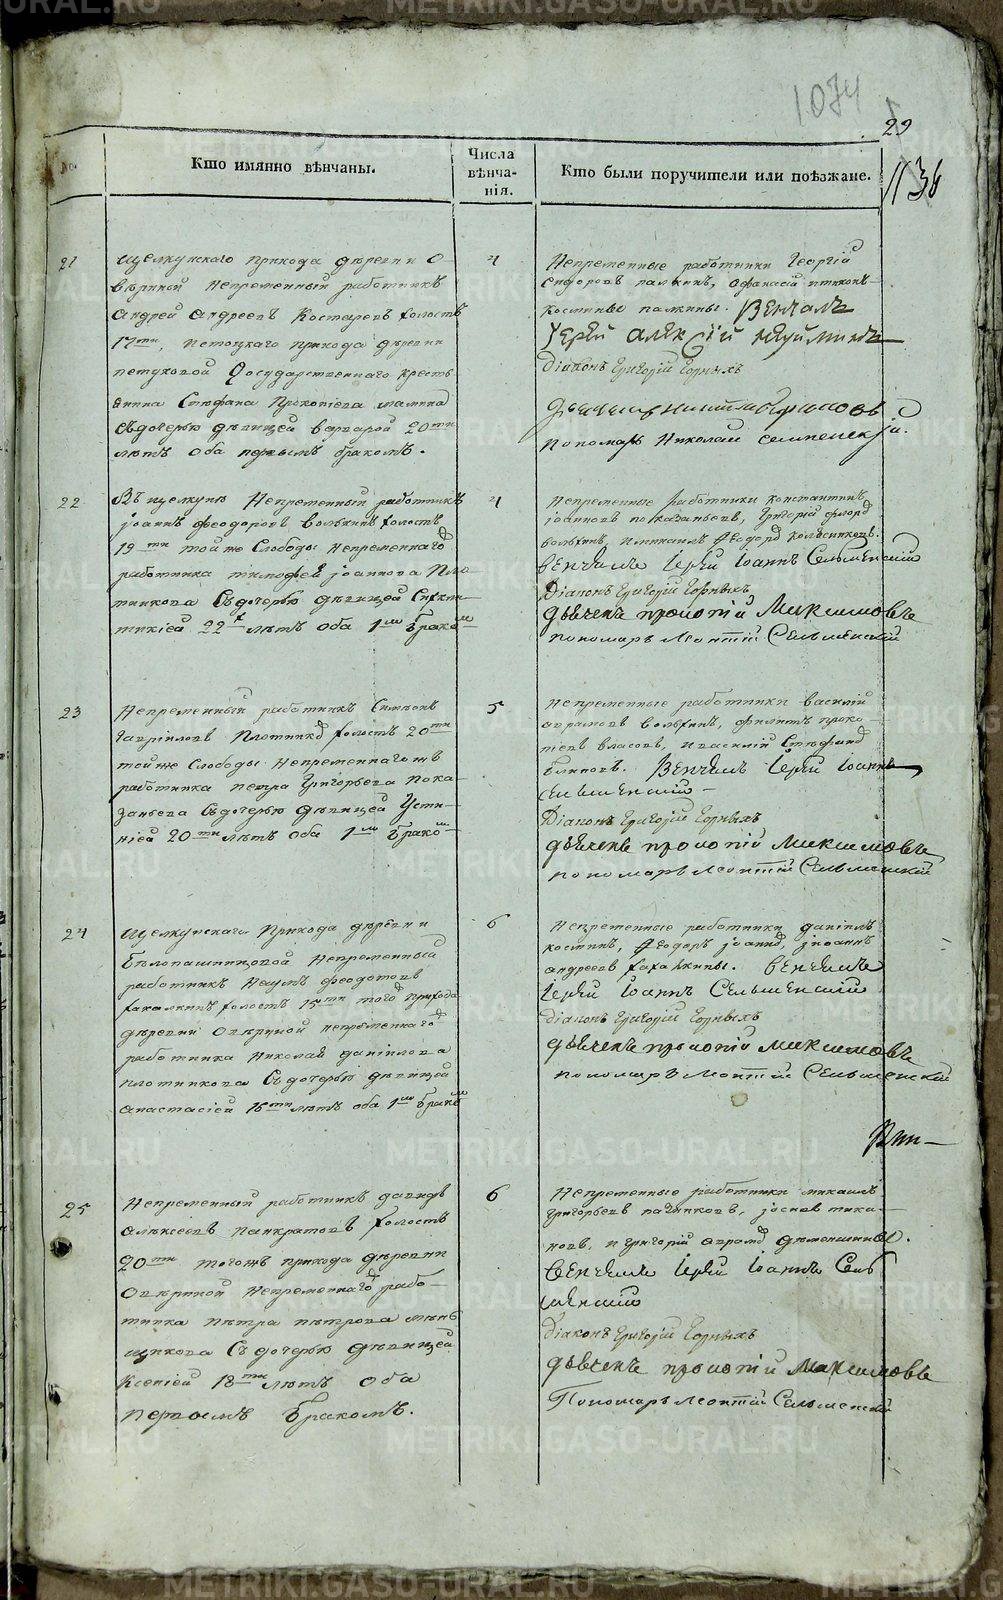 1074
29
1136
№
Кто имянно вѣнчаны.
Числа вѣнча-нія.
Кто были поручители или поѣзжане.
21
щелкунскаго прихода дѣревни о-
вѣриной Непременный работникъ
Андрей Андреевъ Костаревъ холостъ
17ти, истоцкаго прихода дѣревни
петуховой Государственнаго кресть
янина Стефана Прокопіева мамина
съ дочерью дѣвицей варварой 20ти
лѣтъ оба первымъ бракомъ.
4
Непременные работники Георгій
сидоровъ палкинъ, Афанасій
костинъ палкины. Вѣнчалъ
Іерей Алексій
Діаконъ Григорій Горныхъ
пономарь Николай
22
Въ щелкунѣ Непременный работникъ
іоаннъ феодоровъ волкинъ холостъ
19ти той же Слободы Непременнаго
работника тимофея іоаннова Пло-
тникова Съ дочерью дѣвицей Синкли-
тикіей 22х лѣтъ оба 1мъ бракомъ
4
Непременные работники константинъ
іоанновъ показаньевъ, Григорій федоръ
волкинъ, и михаилъ федоръ колясниковъ.
вѣнчалъ Іерей Іоаннъ Сельменскій
Діаконъ Григорій Горныхъ
дьячекъ прокопій Максимовъ
пономарь Леонтій Сельменскій
23
Непременный работникъ Симеонъ
Гавриловъ Плотниковъ холостъ 20ти
той же Слободы Непременнаго
работника петра Григорьева Пока
заньева Съ дочерью дѣвицей Усти-
ніей 20ти лѣтъ оба 1мъ бракомъ
5
Непременные работники василій
аврамовъ волкинъ, филипъ проко-
піевъ власовъ, и василій Стефановъ
блиновъ. Вѣнчалъ Іерей Іоаннъ
сельменскій
Діаконъ Григорій Горныхъ
дьячекъ прокопій Максимовъ
пономарь Леонтій Сельменскій
24
щелкунскаго Прихода дѣревни
бѣлопашинцовой Непременный
работникъ Наумъ феодотовъ
хахалкинъ холостъ 15ти того прихода
дѣревни Овѣриной непременнаго
работника николая даніилова
плотникова Съ дочерью дѣвицей
анастасіей 16ти лѣтъ оба 1мъ бракомъ
6
Непременные работники даніилъ
костинъ, феодоръ іоанновъ, іиоаннъ
андреевъ хахалкины. вѣнчалъ
Іерей Іоаннъ Сельменскій
Діаконъ Григорій Горныхъ
дьячекъ прокопій Максимовъ
пономарь Леонтій Сельменскій
25
Непременный работникъ давидъ
алѣксеевъ панкратовъ холостъ
20ти тогожъ прихода дѣревни
Овѣриной Непременнаго рабо-
тника пѣтра пѣтрова мень
щикова Съ дочерью дѣвицей
Ксеніей 18ти лѣтъ оба
первымъ бракомъ.
6
Непременные работники михаилъ
григорьевъ пачинковъ, іосифъ тиха-
новъ, и григорій аврамовъ дѣменшины.
Вѣнчалъ Іерей Іоаннъ Сель
менскій
Діаконъ Григорій Горныхъ
дьячекъ прокопій Максимовъ
Пономарь Леонтій Сельменскій
METRIKI.GASO-URAL.RU